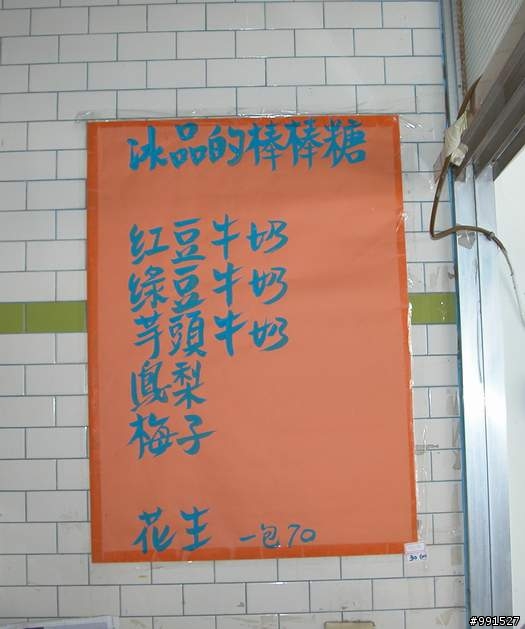 冰品的棒棒糖
紅豆牛奶
綠豆牛奶
芋頭牛奶
鳳梨
梅子
花生 一包70
#991527